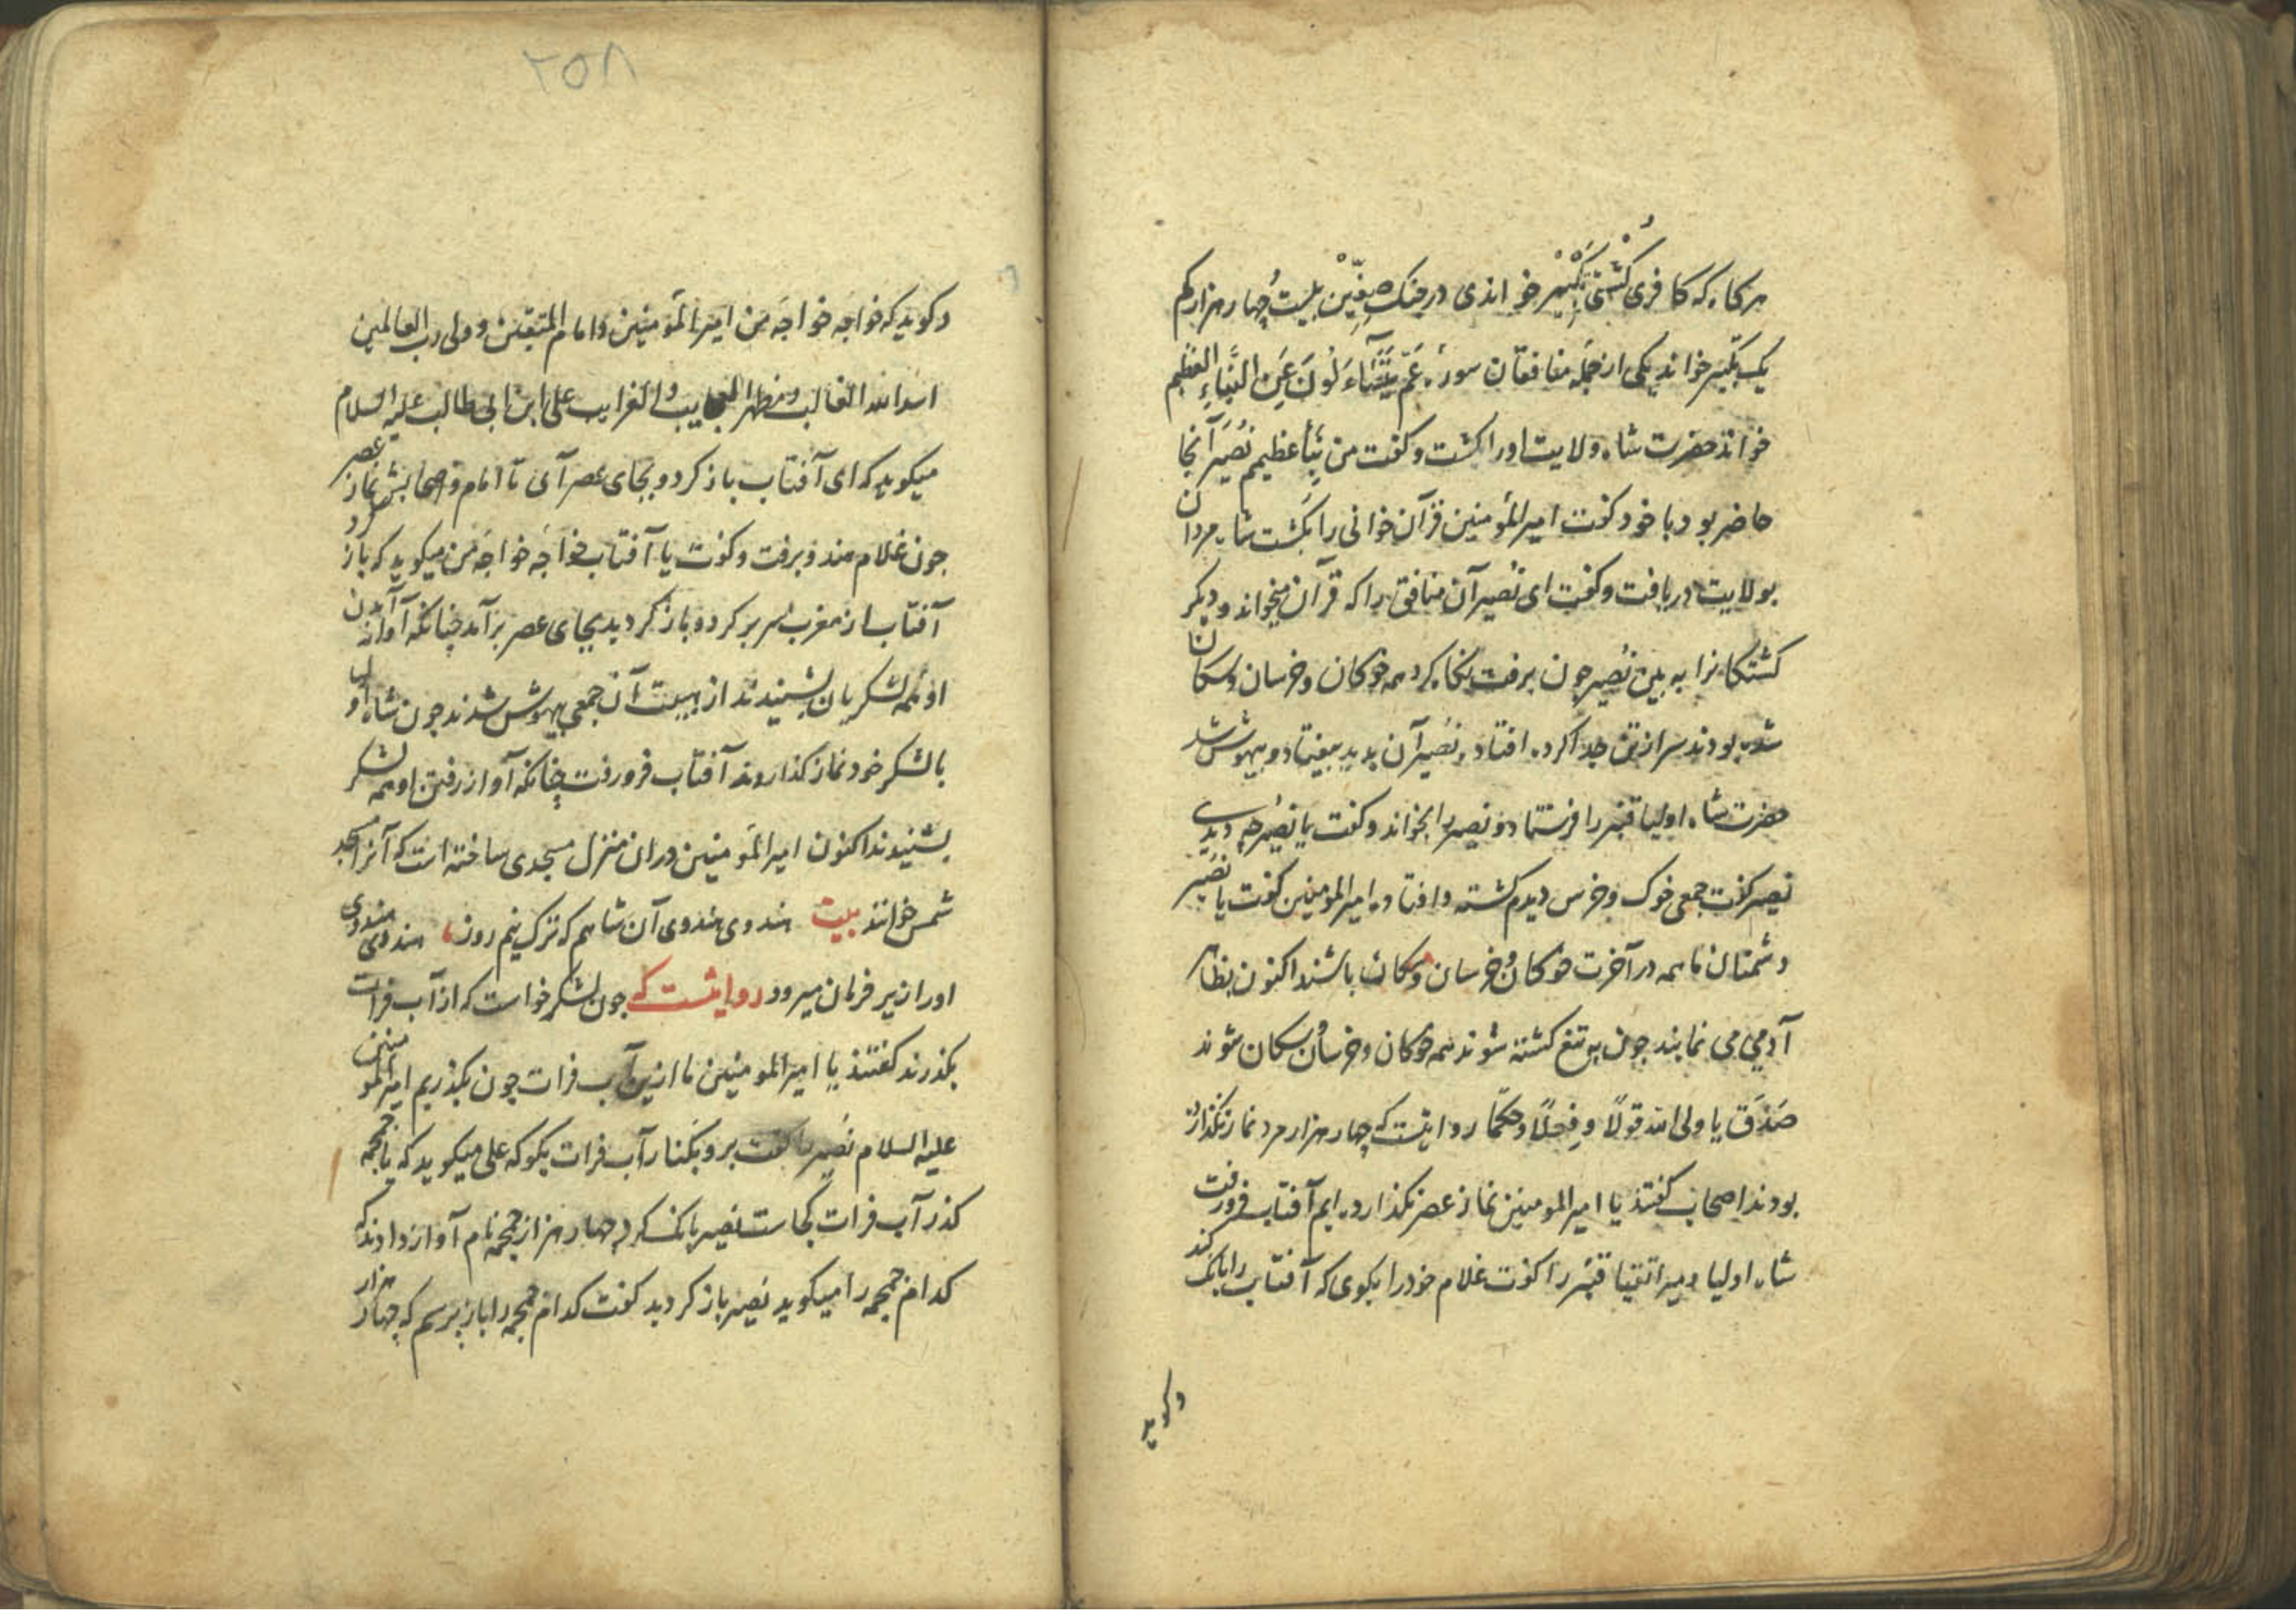 هرکاه که کافری کشتی تکبیر خواندی در جنک صفین بیست چهار هزار کم
یک تکبیر خواند یکی از جمله منافقان سورهٔ عَمَّ یَتَسَآءَلُونَ عَنِ النَّبَاءِ العَظیم
خواند حضرت شاه ولایت اورا کشت و کفت من نبأ عظیم نُصَیر آنجا
حاضر بود با خود کفت امیرالمؤمنین قرآن خوانی را بکشت شاه مردان
بولایت دریافت و کفت ای نُصیر آن منافق را که قرآن میخواند و دیکر
کشتکانرا به بین نُصیر چون برفت نکاه کرد همه خوکان و خرسان و سکان
شده بودند سر از تن جدا کرده افتاده نُصیر آن بدید بیفتاد و بیهوش شد
حضرت شاه اولیا قنبر را فرستاد و نصیر را بخواند و کفت یا نُصیر چه دیدی
نصیر کفت جمعی خوک و خرس دیدم کشته و افتاده امیرالمومنین کفت یا نُصَیر
دشمنان ما همه در آخرت خوکان و خرسان و سکان باشند اکنون بظاهر
آدمی می نمایند چون به تیغ کشته شوند همه خوکان و خرسان و سکان شوند
صَدَقَ یا ولی الله قولاً و فعلاً و حکماً روایتست که چهار هزار مرد نماز نکذارده
بودند اصحاب کفتند یا امیرالمومنین نماز عصر نکذارده ایم آفتاب فرو رفت
شاه اولیا و میر اتقیا قنبر را کفت غلام خود را بکوی که آفتاب را بانک کند
و کوید
۲۵۸
و کوید که خواجه خواجهٔ من امیرالمؤمنین و امام المتقین و ولی رب العالمین
اسد الله الغالب و مظهر العجایب والغرایب علی ابن ابی طالب علیه السلام
میکوید که ای آفتاب باز کرد و بجای عصر آی تا امام و اصحابش نماز عصر کرد
چون غلام هندو برفت و کفت یا آفتاب خواجهٔ خواجهٔ من میکوید که باز
آفتاب از مغرب سر بر کرد و باز کردید بجای عصر برآمد چنانکه آواز آمدن
او همه لشکریان بشنیدند از هیبت آن جمعی بیهوش شدند چون شاه اولیا
با لشکر خود نماز کذاردند آفتاب فرو رفت چنانکه آواز رفتن او همه لشکر
بشنیدند اکنون امیرالمؤمنین در ان منزل مسجدی ساخته است که آنرا مسجد
شمس خوانند بیت هندوی هندوی آن شاهم که ترک نیم روز ، هندوی هندوی
اورا زیر فرمان میرود روایتست که چون لشکر خواست که از آب فرات
بکذرند کفتند یا امیرالمومنین ما ازین آب فرات چون بکذریم امیرالمومنین
علیه السلام نُصیر را کفت برو بکنار آب فرات بکو که علی میکوید که یا جمجمه
کذر آب فرات کجاست نصیر بانک کرد چهار هزار جمجمه نام آواز دادند که
کدام جمجمه را میکوید نُصیر باز کردید کفت کدام جمجمه را باز پرسم که چهار هزار